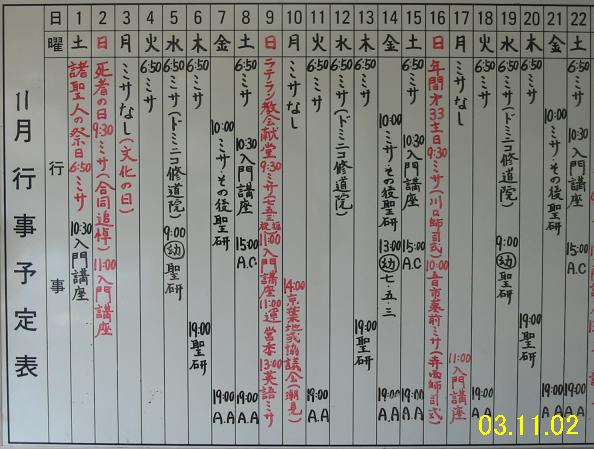 11月行事予定表
日 曜 行事
1 土 諸聖人の祭日 6:50 ミサ 10:30 入門講座
2 日 死者の日 9:30 ミサ(合同追悼) 11:00 入門講座
3 月 ミサなし(文化の日)
4 火 6:50 ミサ
5 水 6:50 ミサ(ドミニコ修道院) 9:00 幼 聖研
6 木 6:50 ミサ 19:00 聖研
7 金 10:00 ミサ・その後聖研 19:00 A.A
8 土 6:50 ミサ 10:30 入門講座 15:00 A.C 19:00 A.A
9 日 ラテラン教会献堂 9:30 ミサ 七五三祝福 11:00 入門講座 11:00 運営委 13:00 英語ミサ
10 月 ミサなし 14:00 京葉地区協議会(潮見)
11 火 6:50 ミサ 19:00 A.A
12 水 6:50 ミサ(ドミニコ修道院)
13 木 6:50 ミサ 19:00 聖研
14 金 10:00 ミサ・その後聖研 13:00 幼 七・五・三 19:00 A.A
15 土 6:50 ミサ 10:30 入門講座 15:00 A.C 19:00 A.A
16 日 年間才33主日 9:30 ミサ(川口師司式) 10:00 五日市墓前ミサ(司式) 11:00 入門講座
17 月 ミサなし
18 火 6:50 ミサ 19:00 A.A
19 水 6:50 ミサ(ドミニコ修道院) 9:00 幼 聖研
20 木 6:50 ミサ 19:00 聖研
21 金 10:00 ミサ・その後聖研 19:00 A.A
22 土 6:50 ミサ 10:30 入門講座 15:00 A.C 19:00 A.A
03.11.02